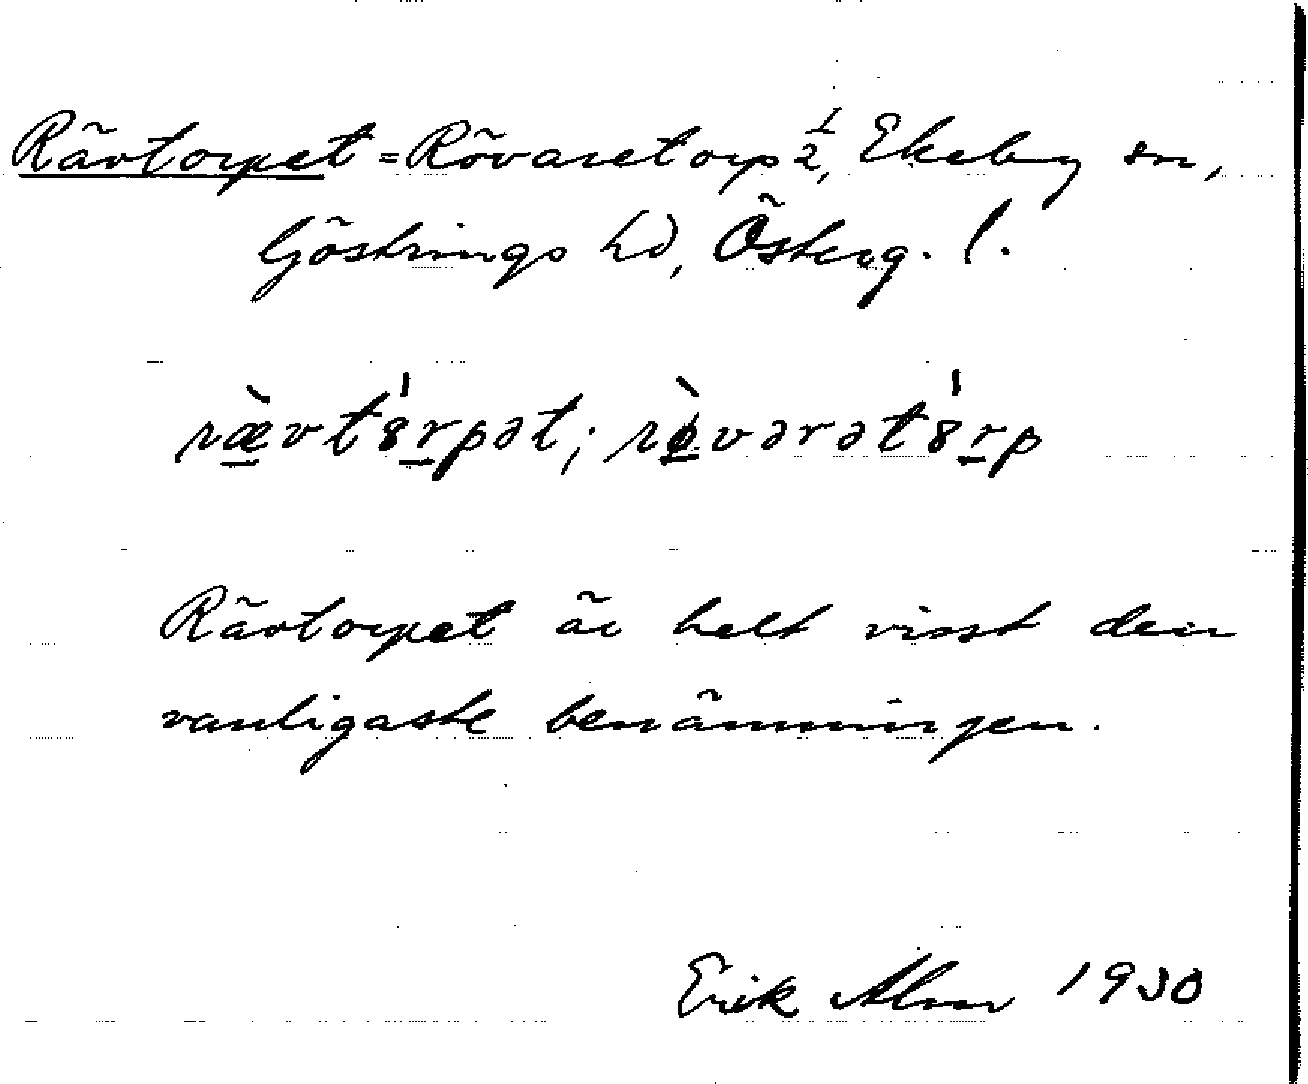 Rävtorpet = Rövaretorp ½, Ekeby sn,
Göstrings hd, Österg. l.
ræ̀vt8́rpət; rø̀vərət8́rp
Rävtorpet är helt visst den
vanligaste benämningen.
Erik Alm 1930